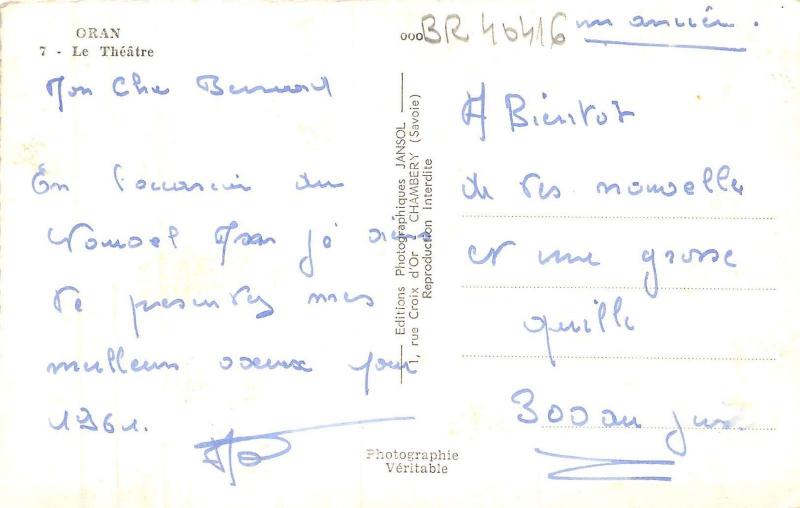 ORAN
7 - Le Théâtre
000 BR 40416
un ancien.
Mon Cher Bernard
En l'occasion du
Nouvel An je viens
te presenter mes
meilleurs voeux pour
1961.
Editions Photographiques JANSOL
1, rue Croix d'Or CHAMBERY (Savoie)
Reproduction Interdite
Photographie
Véritable
A Bientot
de tes nouvelles
et une grosse
quille
300 au jus.